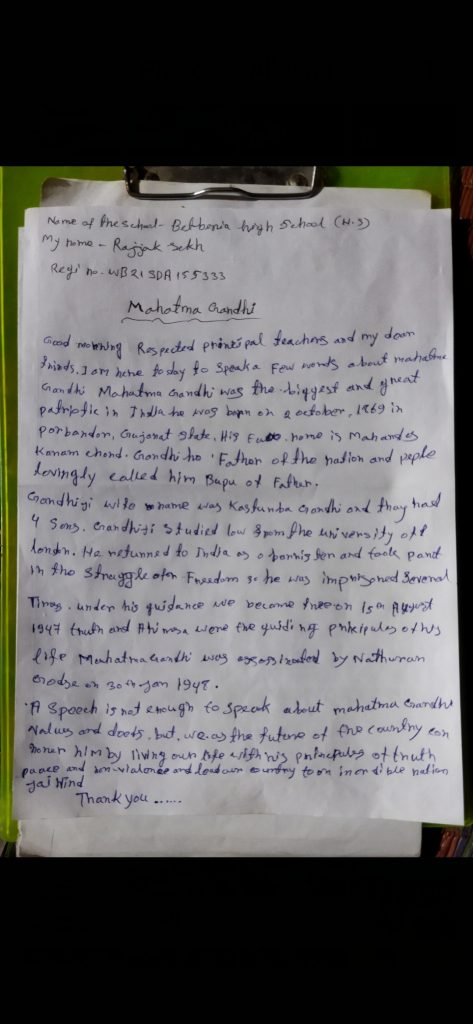 Name of the school- Belbonia high School (H.S)
My name - Rajjak sekh
Regi no. WB21SDA155333
Mahatma Gandhi
Good morning Respected principal teachers and my dear
friends. I am here today to speak a Few words about mahatma
Gandhi Mahatma Gandhi was the biggest and great
patriotic in India he was born on 2 october, 1869 in
porbandar, Gujarat state. His name is Mahandas
Karam chand. Gandhi ho Father of the nation and peple
lovingly called him Bapu of Father.
Gandhiji wife name was Kasturba Gandhi and they had
4 sons. Gandhiji studied low from the university off
london. He returned to India as a barrister and took part
in the struggle Freedom so he was imprisoned Several
Times. under his guidance we become free on 15 August
1947 truth and Ahimsa were the guiding of his
life Mahatma Gandhi was assassinated by Nathuram
Godse on 30th Jan 1948.
A Speech is not enough to speak about mahatma Gandhi
Values and deeds. but, we as the future of the country can
honor him by living our life with his principles of truth
peace and non-violence and lead our country to an incredible nation
jai Hind
Thank you ......